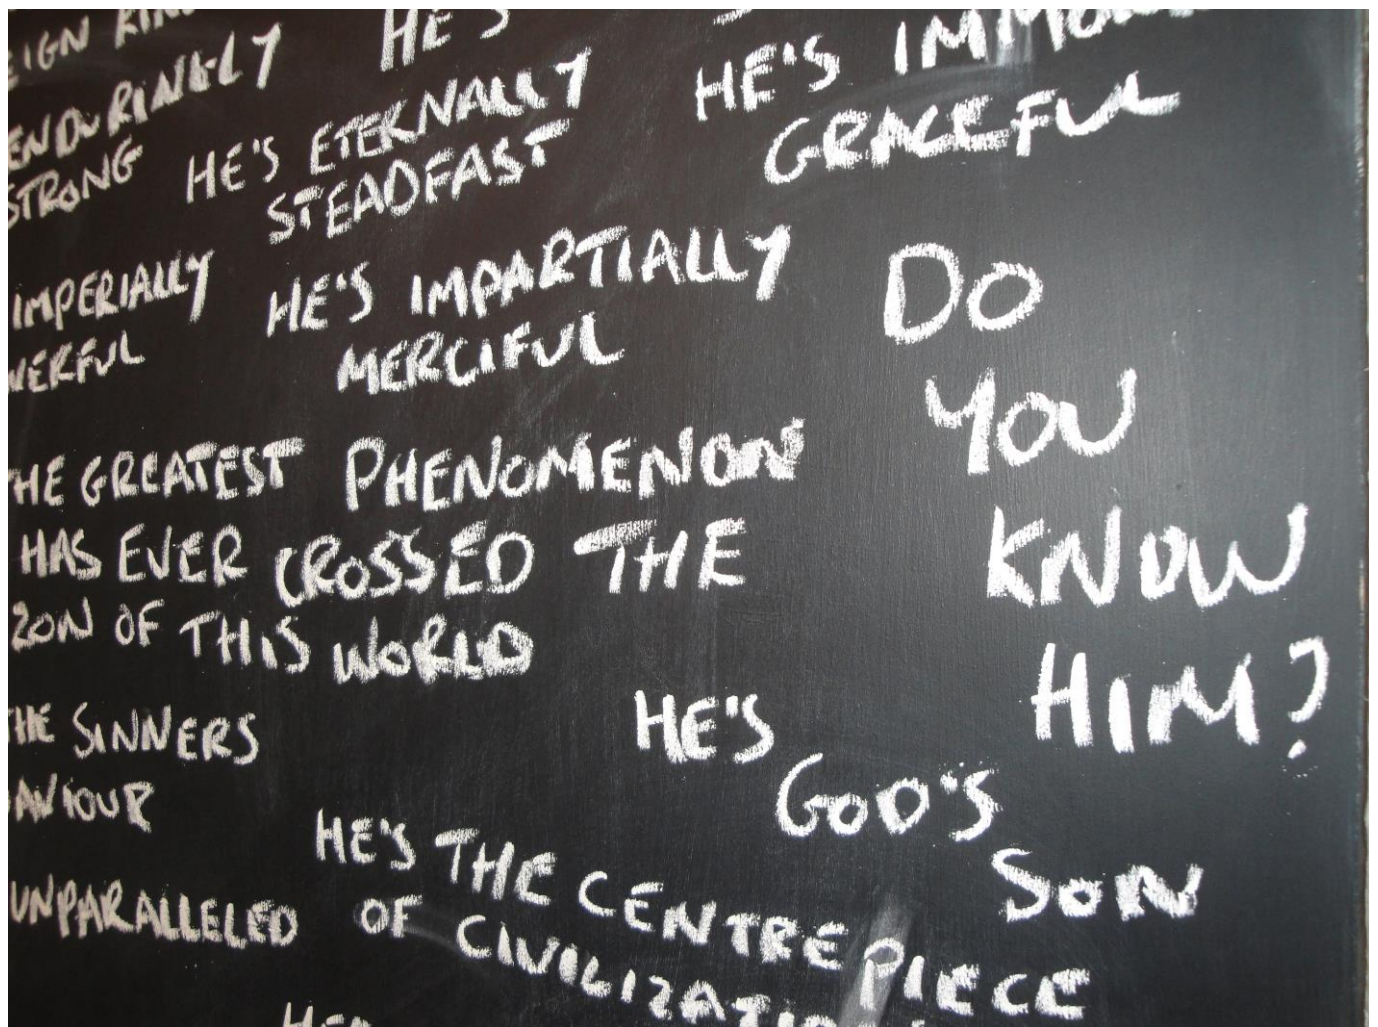 HE'S
ENDURINGLY
STRONG
HE'S ETERNALLY
STEADFAST
HE'S
GRACEFUL
IMPERIALLY
HE'S IMPARTIALLY
MERCIFUL
DO
YOU
KNOW
HIM?
THE GREATEST PHENOMENON
HAS EVER CROSSED THE
ZON OF THIS WORLD
THE SINNERS
AVIOUR
HE'S
GOD'S
SON
UNPARALLELED
HE'S THE CENTREPIECE
OF CIVILIZATI